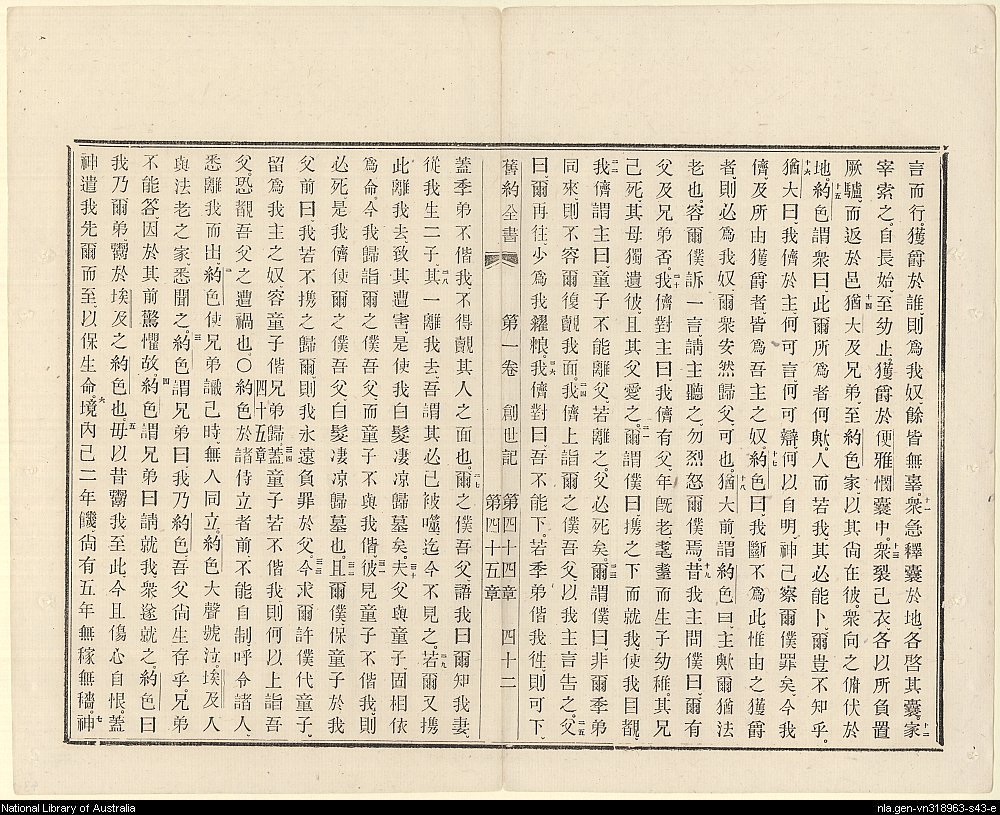 言而行獲爵於誰、則爲我奴、餘皆無辜。十一衆急釋囊於地、各啓其囊。十二家
宰索之、自長始、至幼止。獲爵於便雅憫囊中。十三衆裂己衣、各以所負置
厥驢、而返於邑。十四猶大及兄弟至約色家、以其尙在彼、衆向之俯伏於
地。十五約色謂衆曰、此爾所爲者何歟。人而若我、其必能卜、爾豈不知乎。
十六猶大曰、我儕於主何可言、何可辯、何以自明。神已察爾僕罪矣、今我
儕及所由獲爵者、皆爲吾主之奴。十七約色曰、我斷不爲此、惟由之獲爵
者、則必爲我奴、爾衆安然歸父可也。十八猶大前謂約色曰、主歟、爾猶法
老也、容爾僕訴一言、請主聽之、勿烈怒爾僕焉。十九昔我主問僕曰、爾有
父及兄弟否。二十我儕對主曰、我儕有父、年旣老耄、耋而生子幼稚、其兄
已死、其母獨遺彼、且其父愛之。二一爾謂僕曰、攜之下而就我、使我目覩。
二二我儕謂主曰、童子不能離父、若離之、父必死矣。二三爾謂僕曰、非爾季弟
同來、則不容爾復覿我面。二四我儕上詣爾之僕吾父、以我主言告之。二五父
曰、爾再往少爲我糴粮。二六我儕對曰、吾不能下。若季弟偕我往、則可下、
舊約全書 第一卷 創世記 第四十四章 第四十五章 四十二
蓋季弟不偕我、不得覿其人之面也。二七爾之僕吾父語我曰、爾知我妻
從我生二子、二八其一離我去、吾謂其必已被噬、迄今不見之。二九若爾又攜
此離我去、致其遭害、是使我白髮凄凉歸墓矣。三十夫父與童子、固相依
爲命、今我歸詣爾之僕吾父、而童子不與我偕、三一彼見童子不偕我、則
必死、是我儕使爾之僕吾父、白髮凄凉歸墓也。三二且爾僕保童子於我
父前曰、我若不攜之歸爾、則我永遠負罪於父。三三今求爾許僕代童子、
留爲我主之奴、容童子偕兄弟歸。三四蓋童子若不偕我、則何以上詣吾
父、恐覩吾父之遭禍也。〇四十五章 約色於諸侍立者前、不能自制、呼令諸人、
悉離我而出。約色使兄弟識己時、無人同立。二約色大聲號泣、埃及人
與法老之家悉聞之。三約色謂兄弟曰、我乃約色、吾父尙生存乎。兄弟
不能答、因於其前驚懼故。四約色謂兄弟曰、請就我、衆遂就之。約色曰、
我乃爾弟鬻於埃及之約色也。五毋以昔鬻我至此、今且傷心自恨。蓋
神遣我先爾而至、以保生命。六境內已二年饑、尙有五年無稼無穡。七神
National Library of Australia
nla.gen-vn318963-s43-e